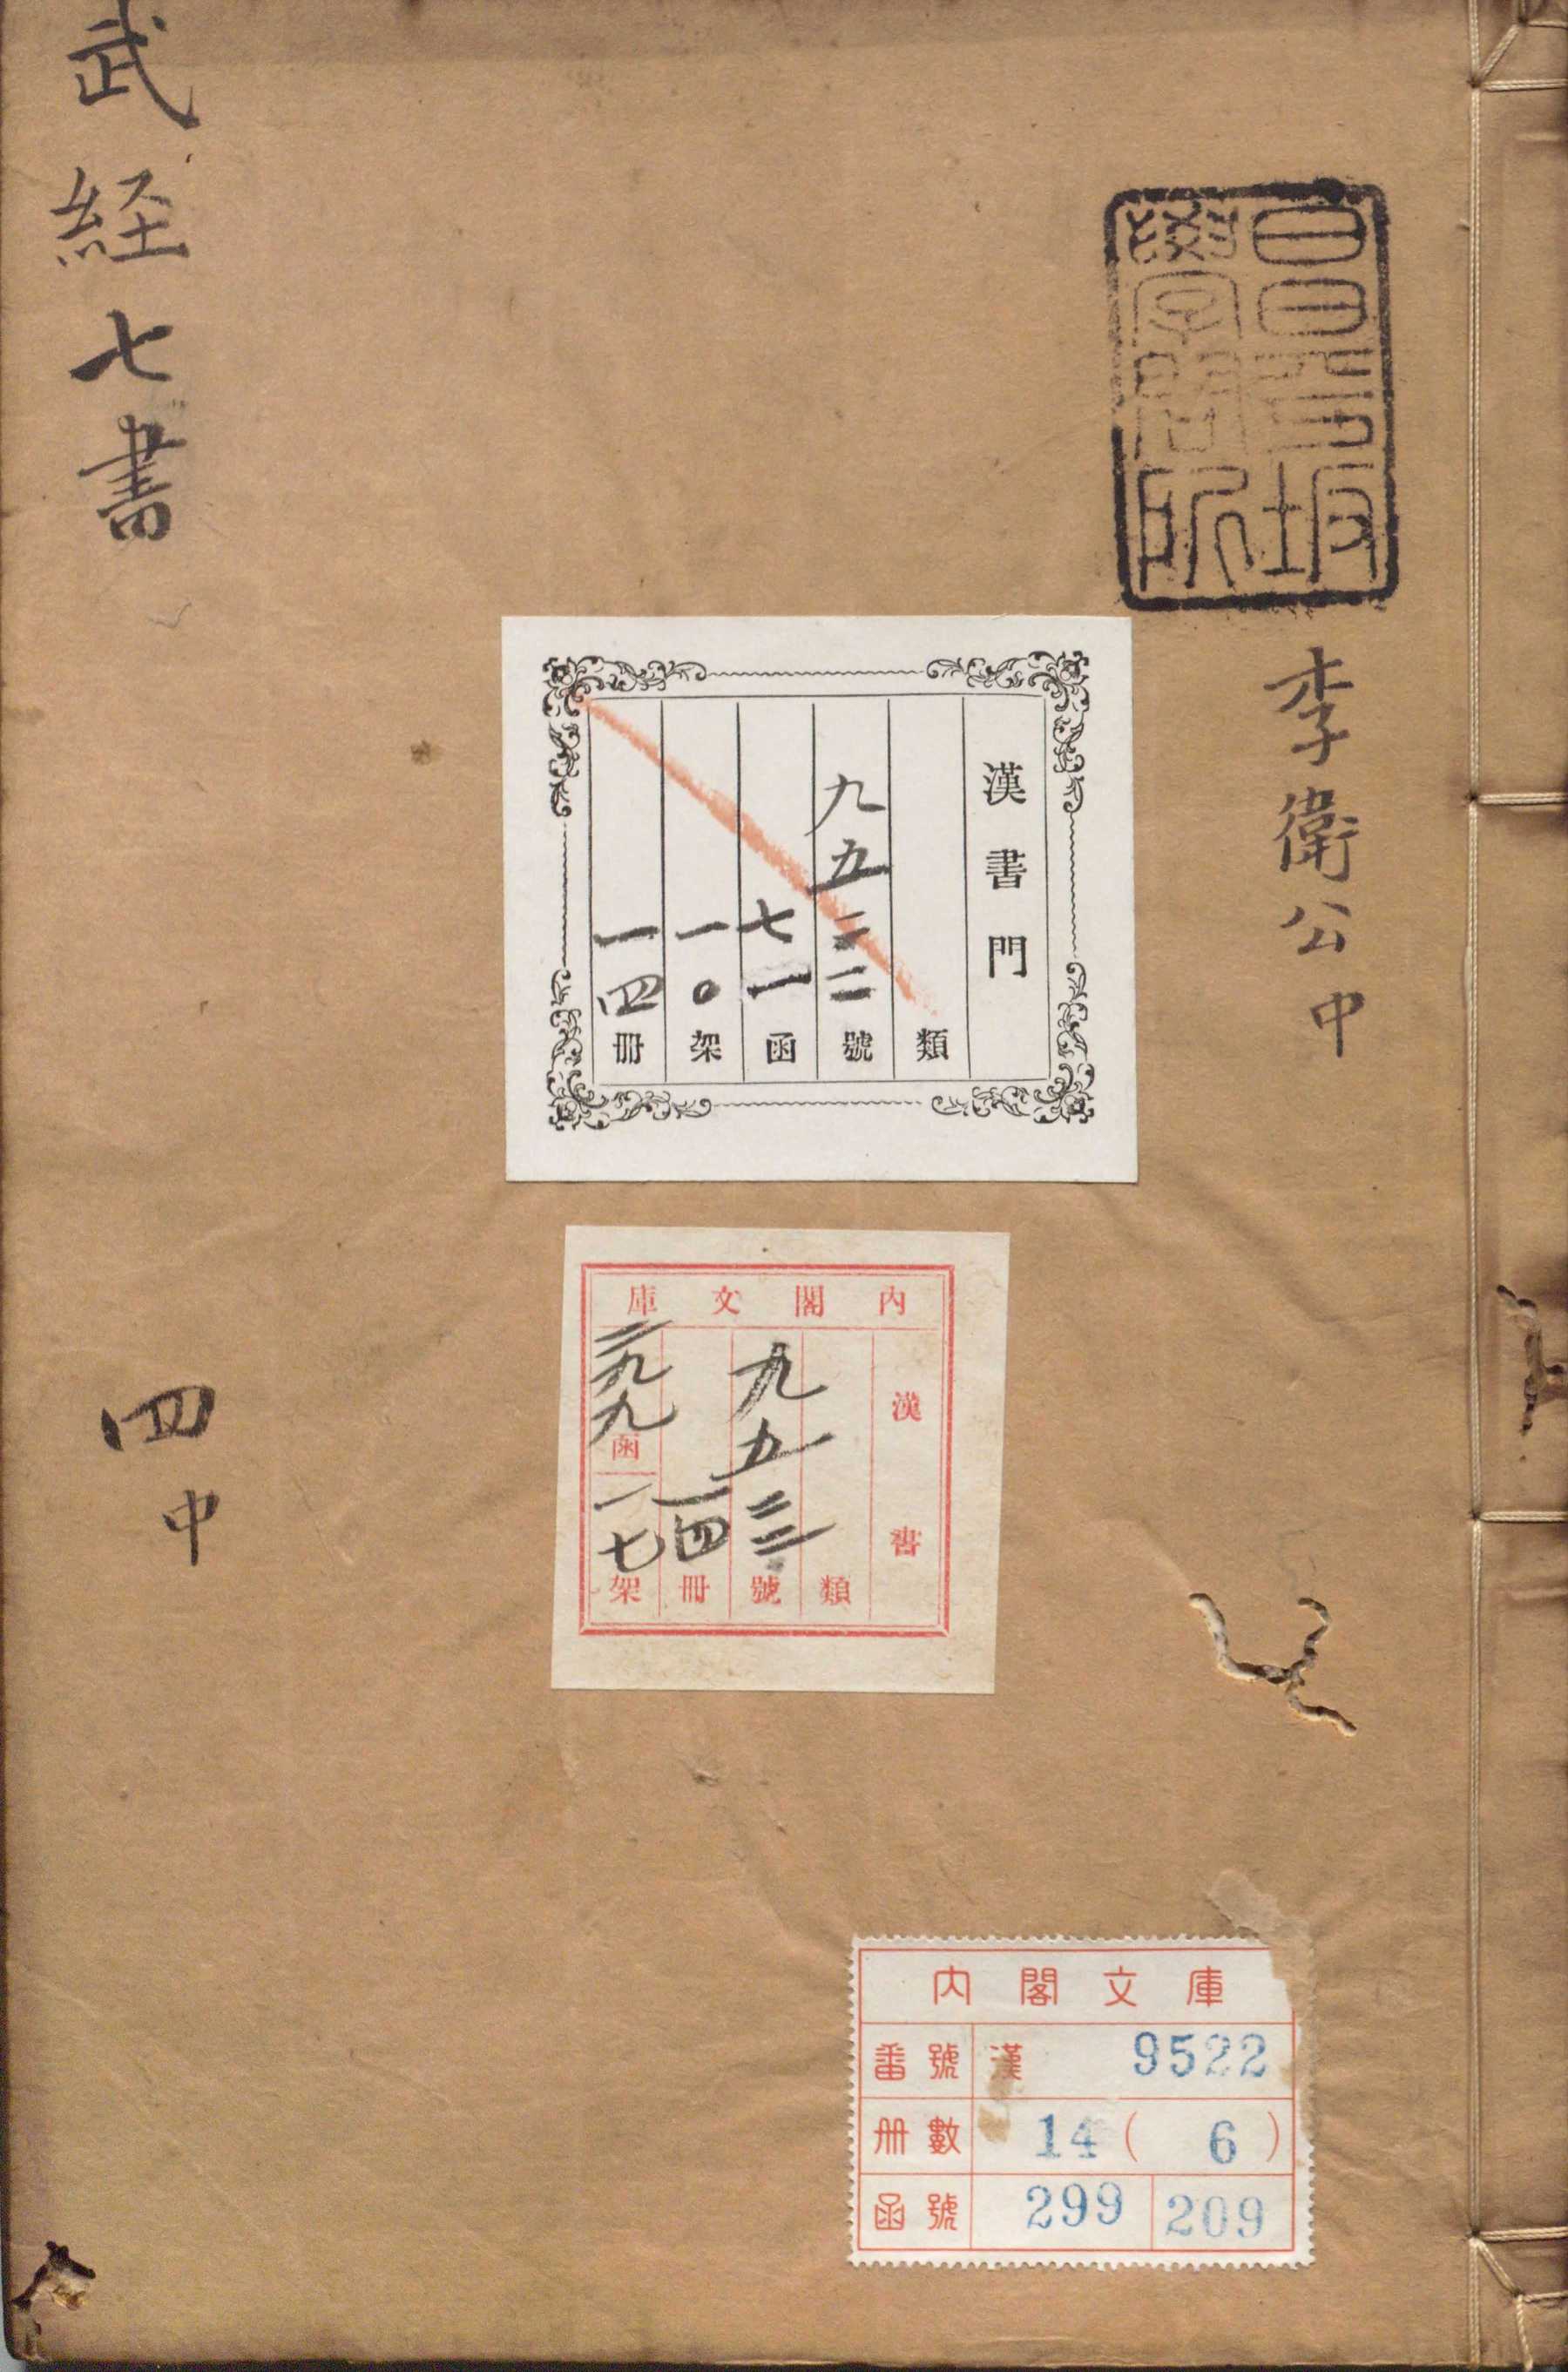 昌平坂
學問所
李衛公中
武経七書
四中
漢書門
類
九五二二號
七一函
一〇架
一四冊
內閣文庫
漢書
類
九五二二號
一四冊
二九九函
一七架
內閣文庫
番號 漢 9522
冊數 14(6)
函號 299 209